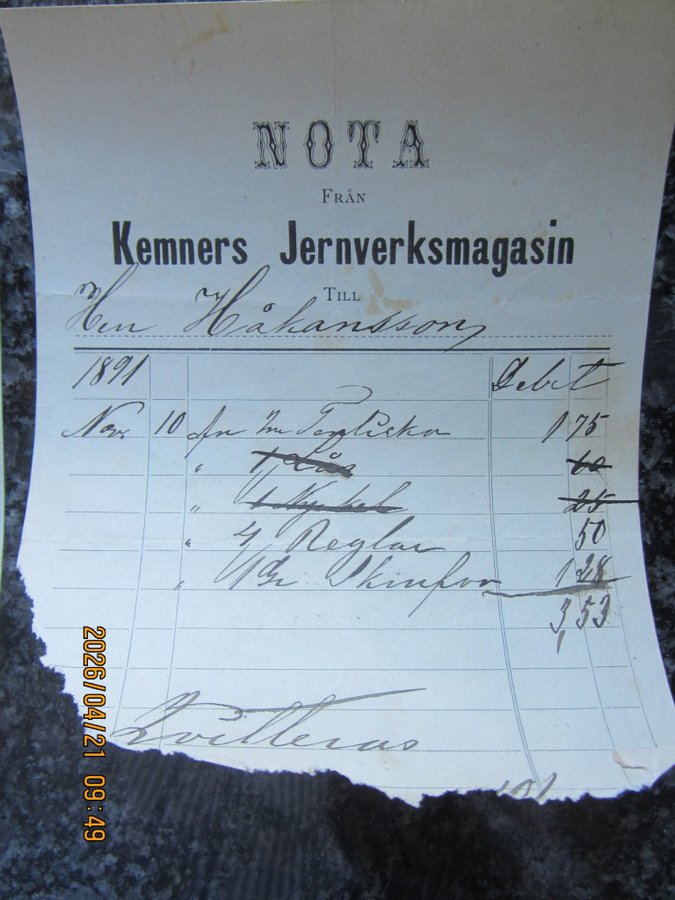 NOTA
FRÅN
Kemners Jernverksmagasin
TILL
Herr Håkansson
1891 Debet
Nov. 10 1 75
" 1 Lås 10
" 1 Nyckel 25
" 4 Reglar 50
" 1 28
3,53
Qvitteras
2026/04/21 09:49